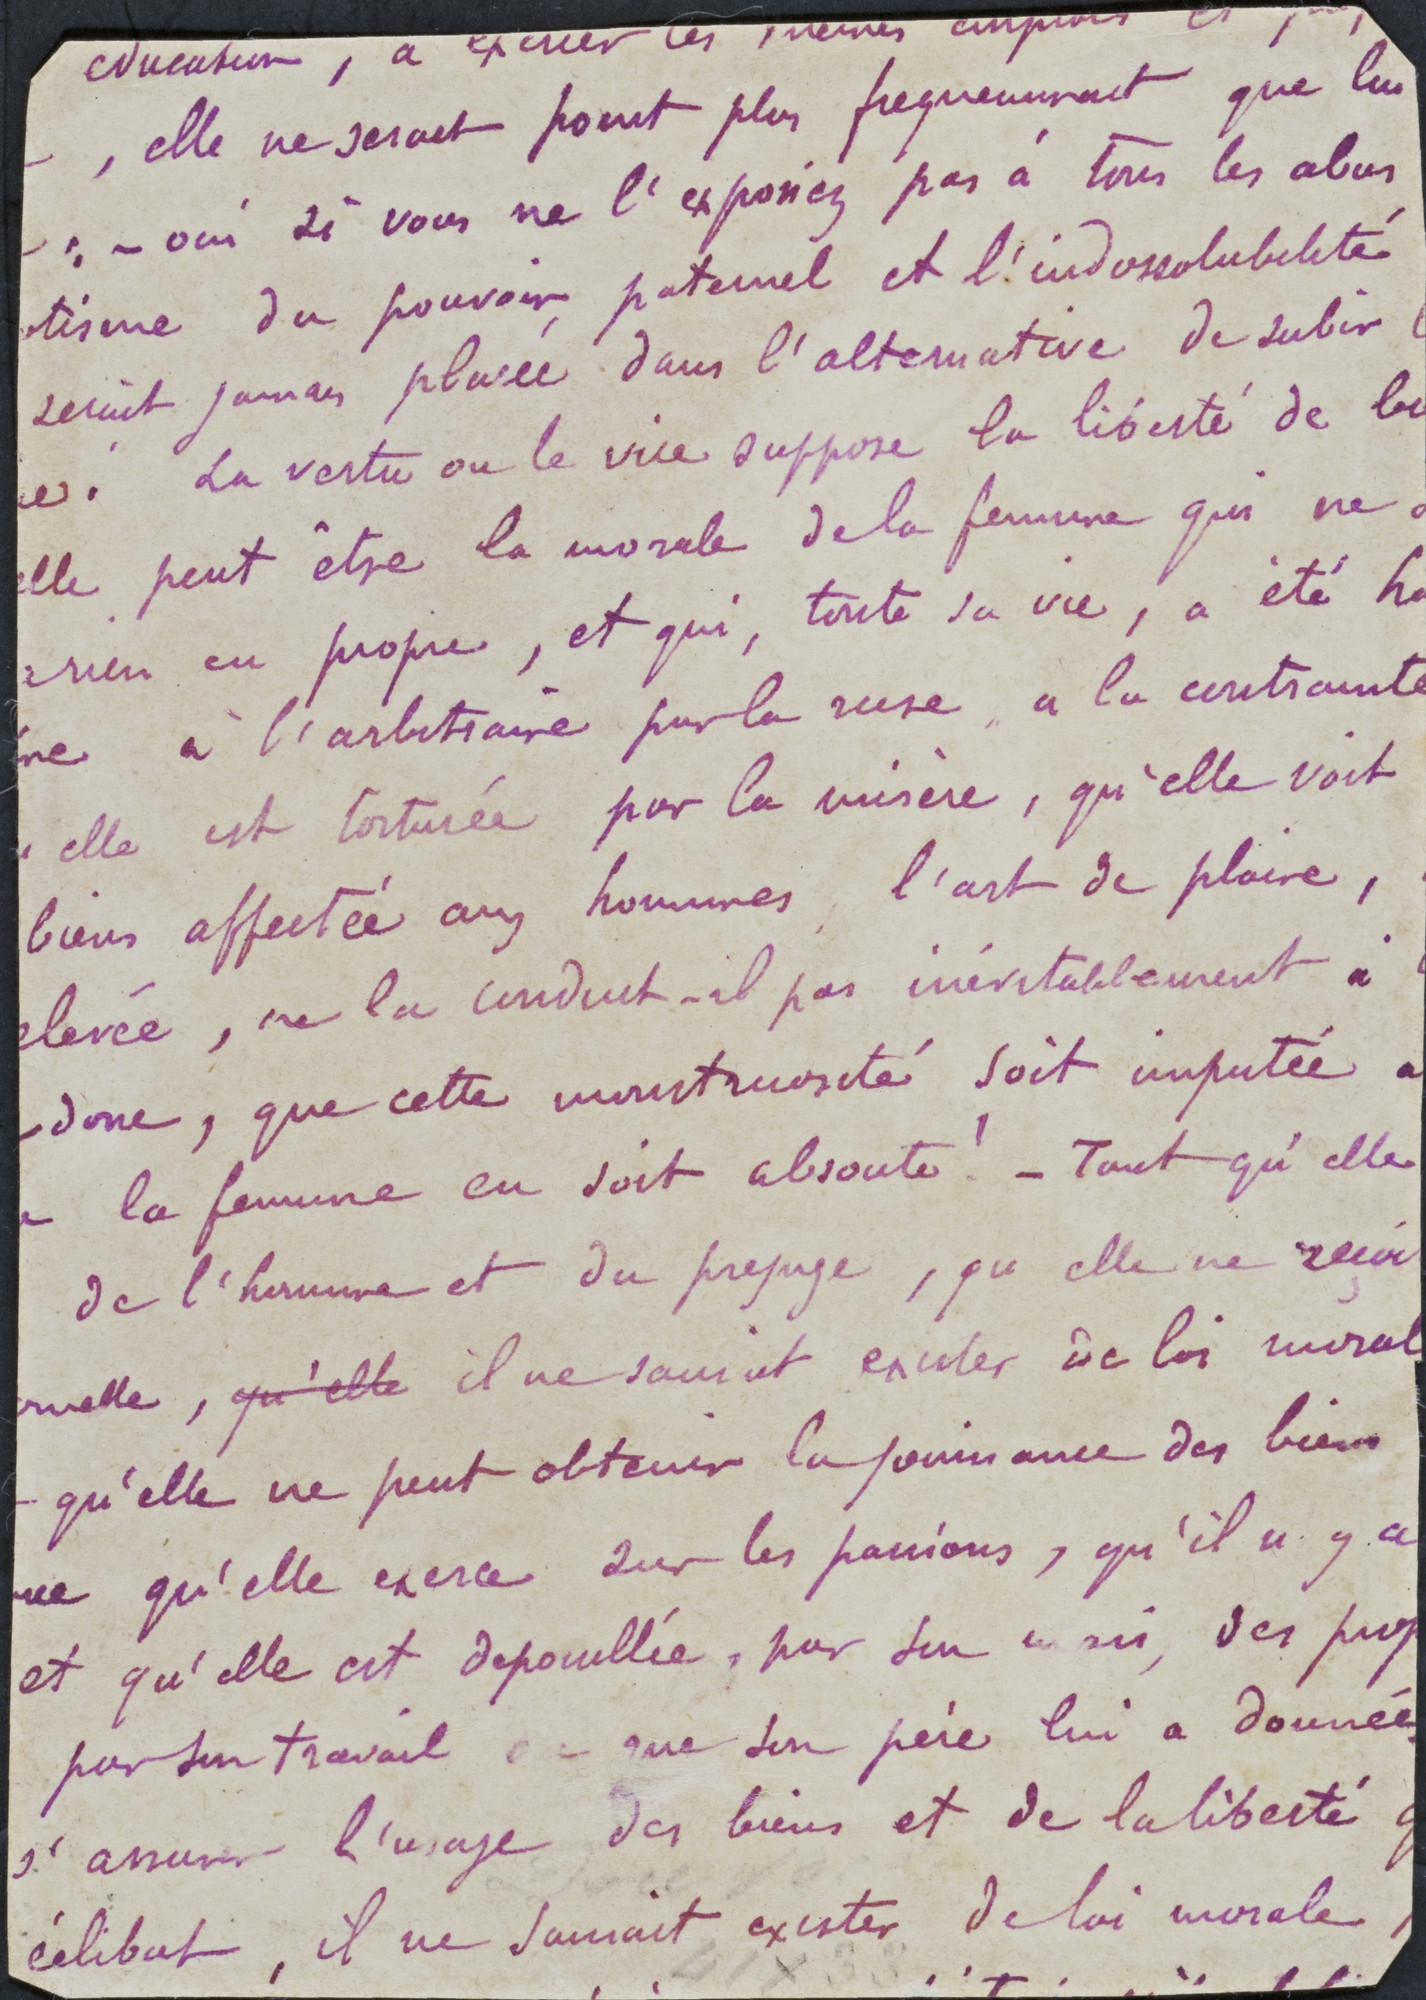 education, a exercer les mêmes emplois et
, elle ne serait point plus frequemment que lui
; – oui si vous ne l'exposiez pas à tous les abus
otisme du pouvoir paternel et l'indossolubilité
serait jamais placée dans l'alternative de subir
ie. La vertu ou le vice suppose la liberté de
elle peut être la morale de la femme qui ne
rien en propre, et qui, toute sa vie, a été
ire à l'arbitraire par la ruse, a la contrainte
elle est torturée par la misère, qu'elle voit
biens affectée aux hommes, l'art de plaire,
elevée, ne la conduit-il pas inévitablement à
donc, que cette monstruosité soit imputée a
la femme en soit absoute! – Tant qu'elle
de l'homme et du prejuge, qu elle ne reçoi
ornelle, qu'elle il ne saurait exister de loi moral
– qu'elle ne peut obtenir la jouissance des biens
nce qu'elle exerce sur les passions, qu'il n y a
et qu'elle est depouillée, par son mari, des prop
par son travail ou que son père lui a données
s'assurer l'usage des biens et de la liberté q
célibat, il ne saurait exister de loi morale,